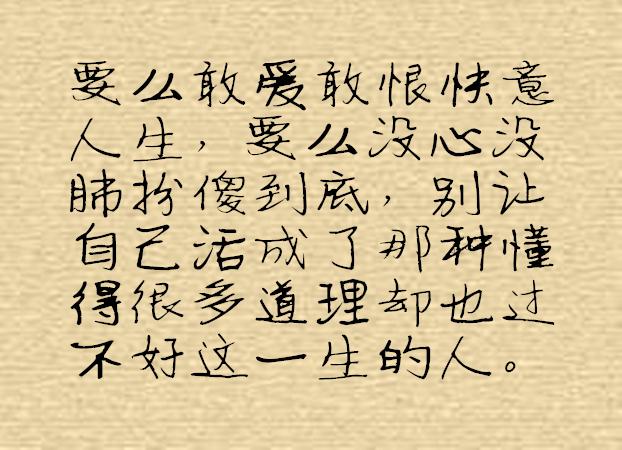 要么敢爱敢恨快意
人生，要么没心没
肺扮傻到底，别让
自己活成了那种懂
得很多道理却也过
不好这一生的人。